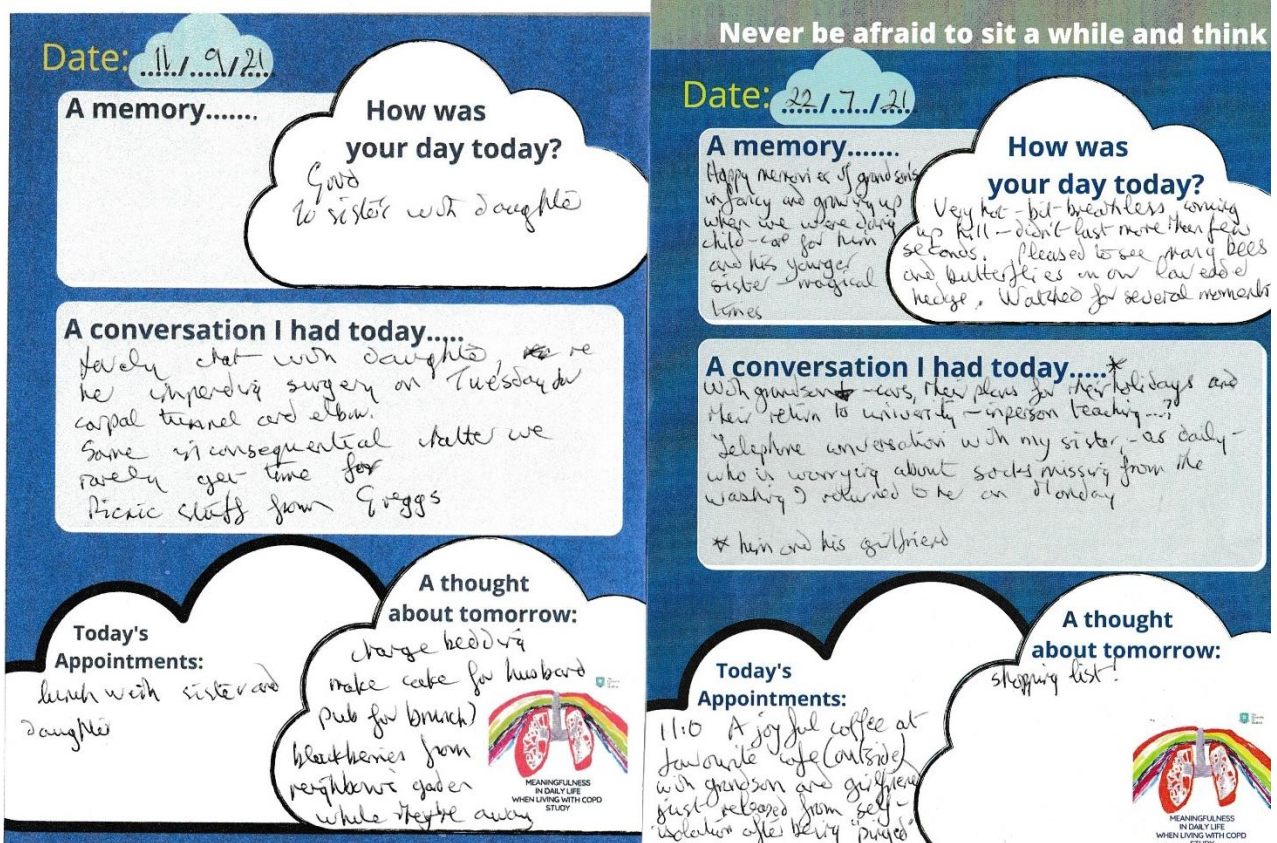 Date: 11/9/21
A memory.......
How was
your day today?
Good
To sister with daughter
A conversation I had today.....
Lovely chat with daughter, re
her impending surgery on Tuesday for
carpal tunnel and elbow.
Some inconsequential chatter we
rarely get time for
Picnic stuff from Greggs
Today's
Appointments:
lunch with sister and
daughter
A thought
about tomorrow:
change bedding
make cake for husband
pub for brunch)
blackberries from
neighbour's garden
while they're away
MEANINGFULNESS
IN DAILY LIFE
WHEN LIVING WITH COPD
STUDY
Never be afraid to sit a while and think
Date: 22/7/21
A memory.......
Happy memories of grandson's
infancy and growing up
when we were doing
child-care for him
and his younger
sister - magical
times
How was
your day today?
Very hot - bit breathless coming
up hill - didn't last more than few
seconds. Pleased to see many bees
and butterflies on our lavender
hedge. Watched for several moments
A conversation I had today.....*
With grandson - cars, their plans for their holidays and
their return to university - in person teaching...?
Telephone conversation with my sister, - as daily -
who is worrying about socks missing from the
washing I returned to her on Monday
* him and his girlfriend
Today's
Appointments:
11:0 A joyful coffee at
favourite cafe (outside)
with grandson and girlfriend
just released from self-
isolation after being "pinged"
A thought
about tomorrow:
shopping list!
MEANINGFULNESS
IN DAILY LIFE
WHEN LIVING WITH COPD
STUDY